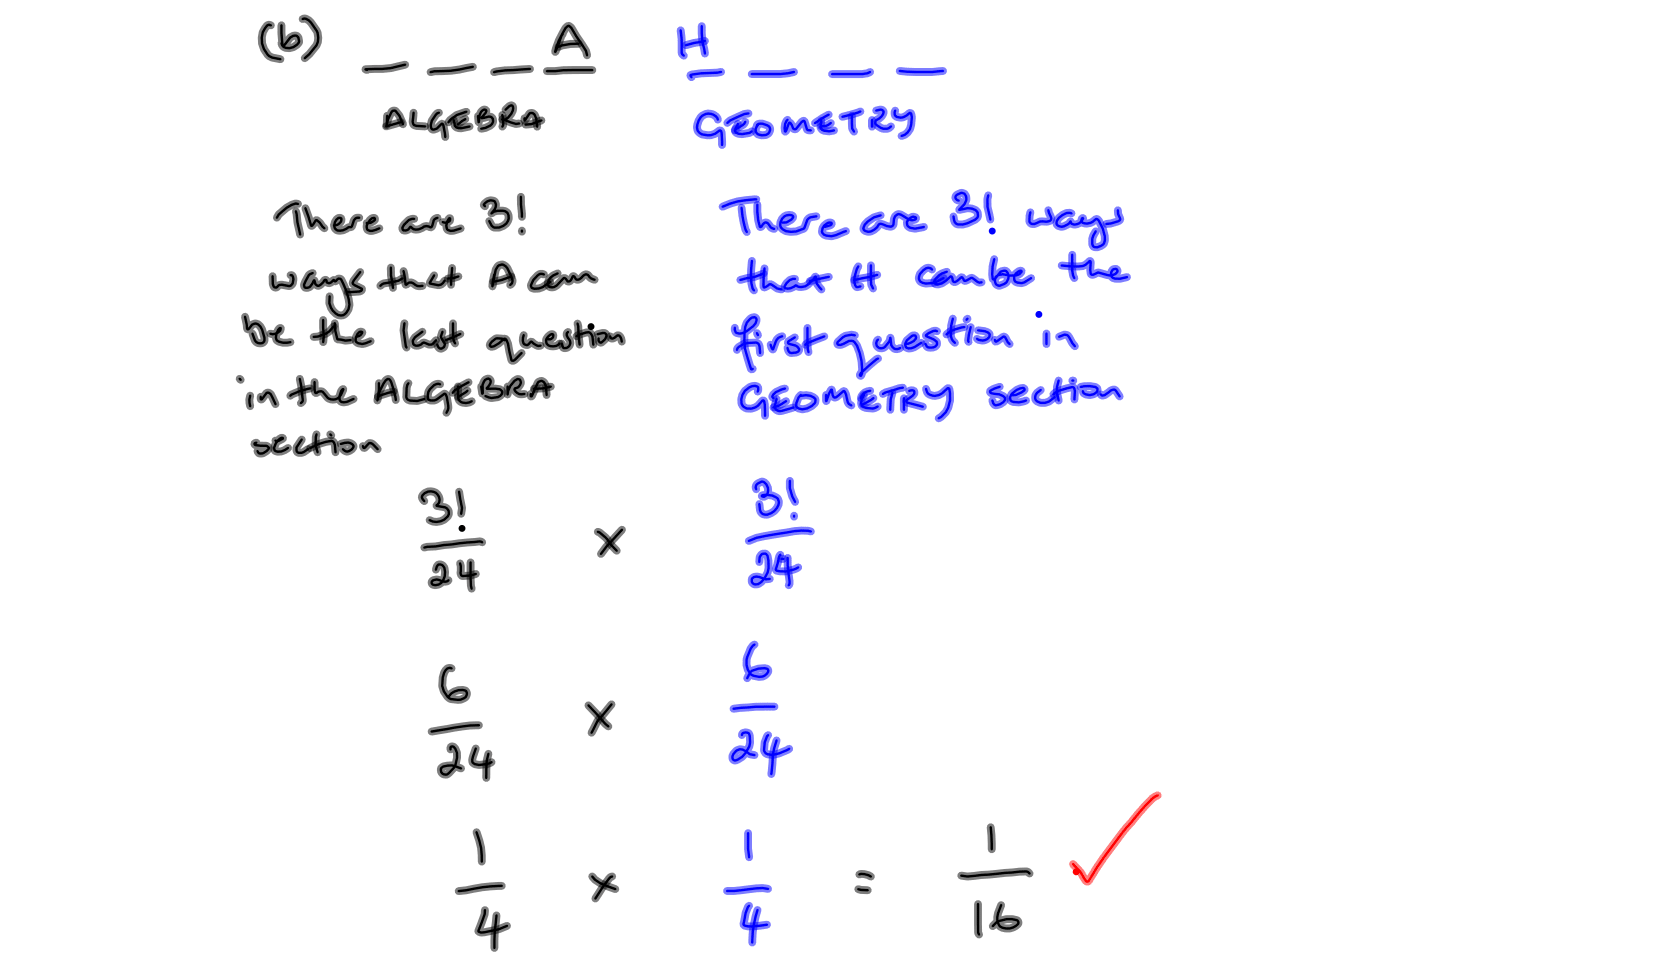 (b) _ _ _ A H _ _ _
ALGEBRA GEOMETRY
There are 3!
ways that A can
be the last question
in the ALGEBRA
section
There are 3! ways
that H can be the
first question in
GEOMETRY section
3!/24 × 3!/24
6/24 × 6/24
1/4 × 1/4 = 1/16 ✓